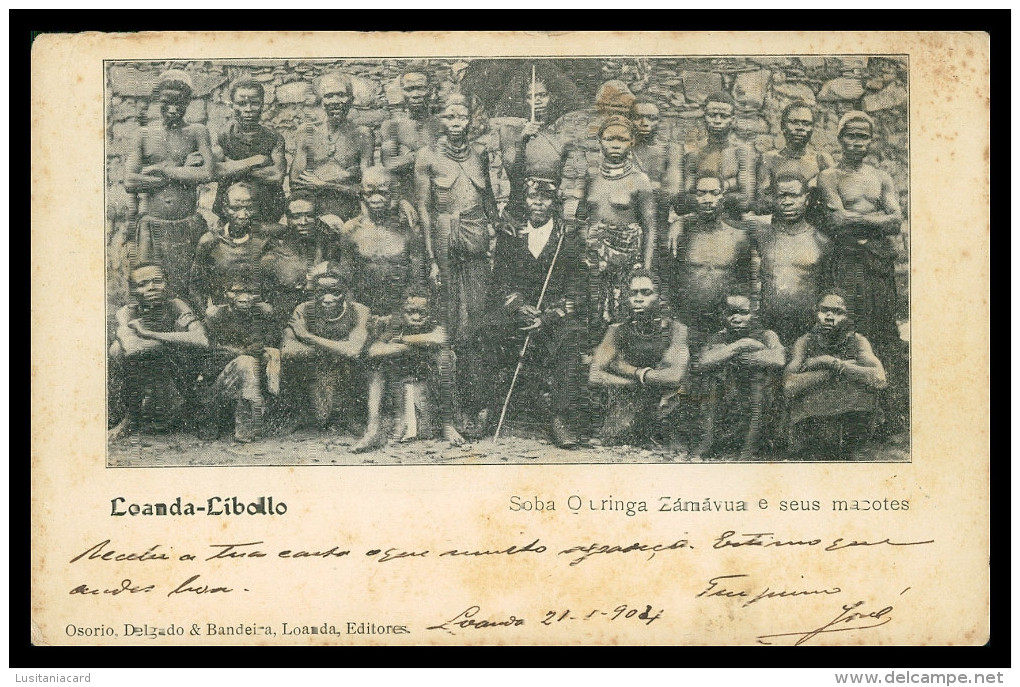 Loanda-Libollo
Soba Quringa Zámávua e seus macotes
Recebi a tua carta o que muito agradeço. Estimo que
andes boa.
Teu primo
José
Loanda 21-1-904
Osorio, Delgado & Bandeira, Loanda, Editores.
Lusitaniacard
www.delcampe.net